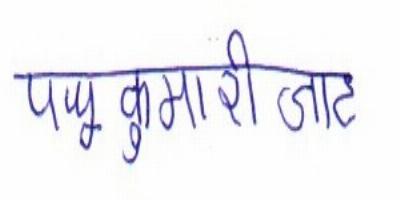 पप्पू कुमारी जाट